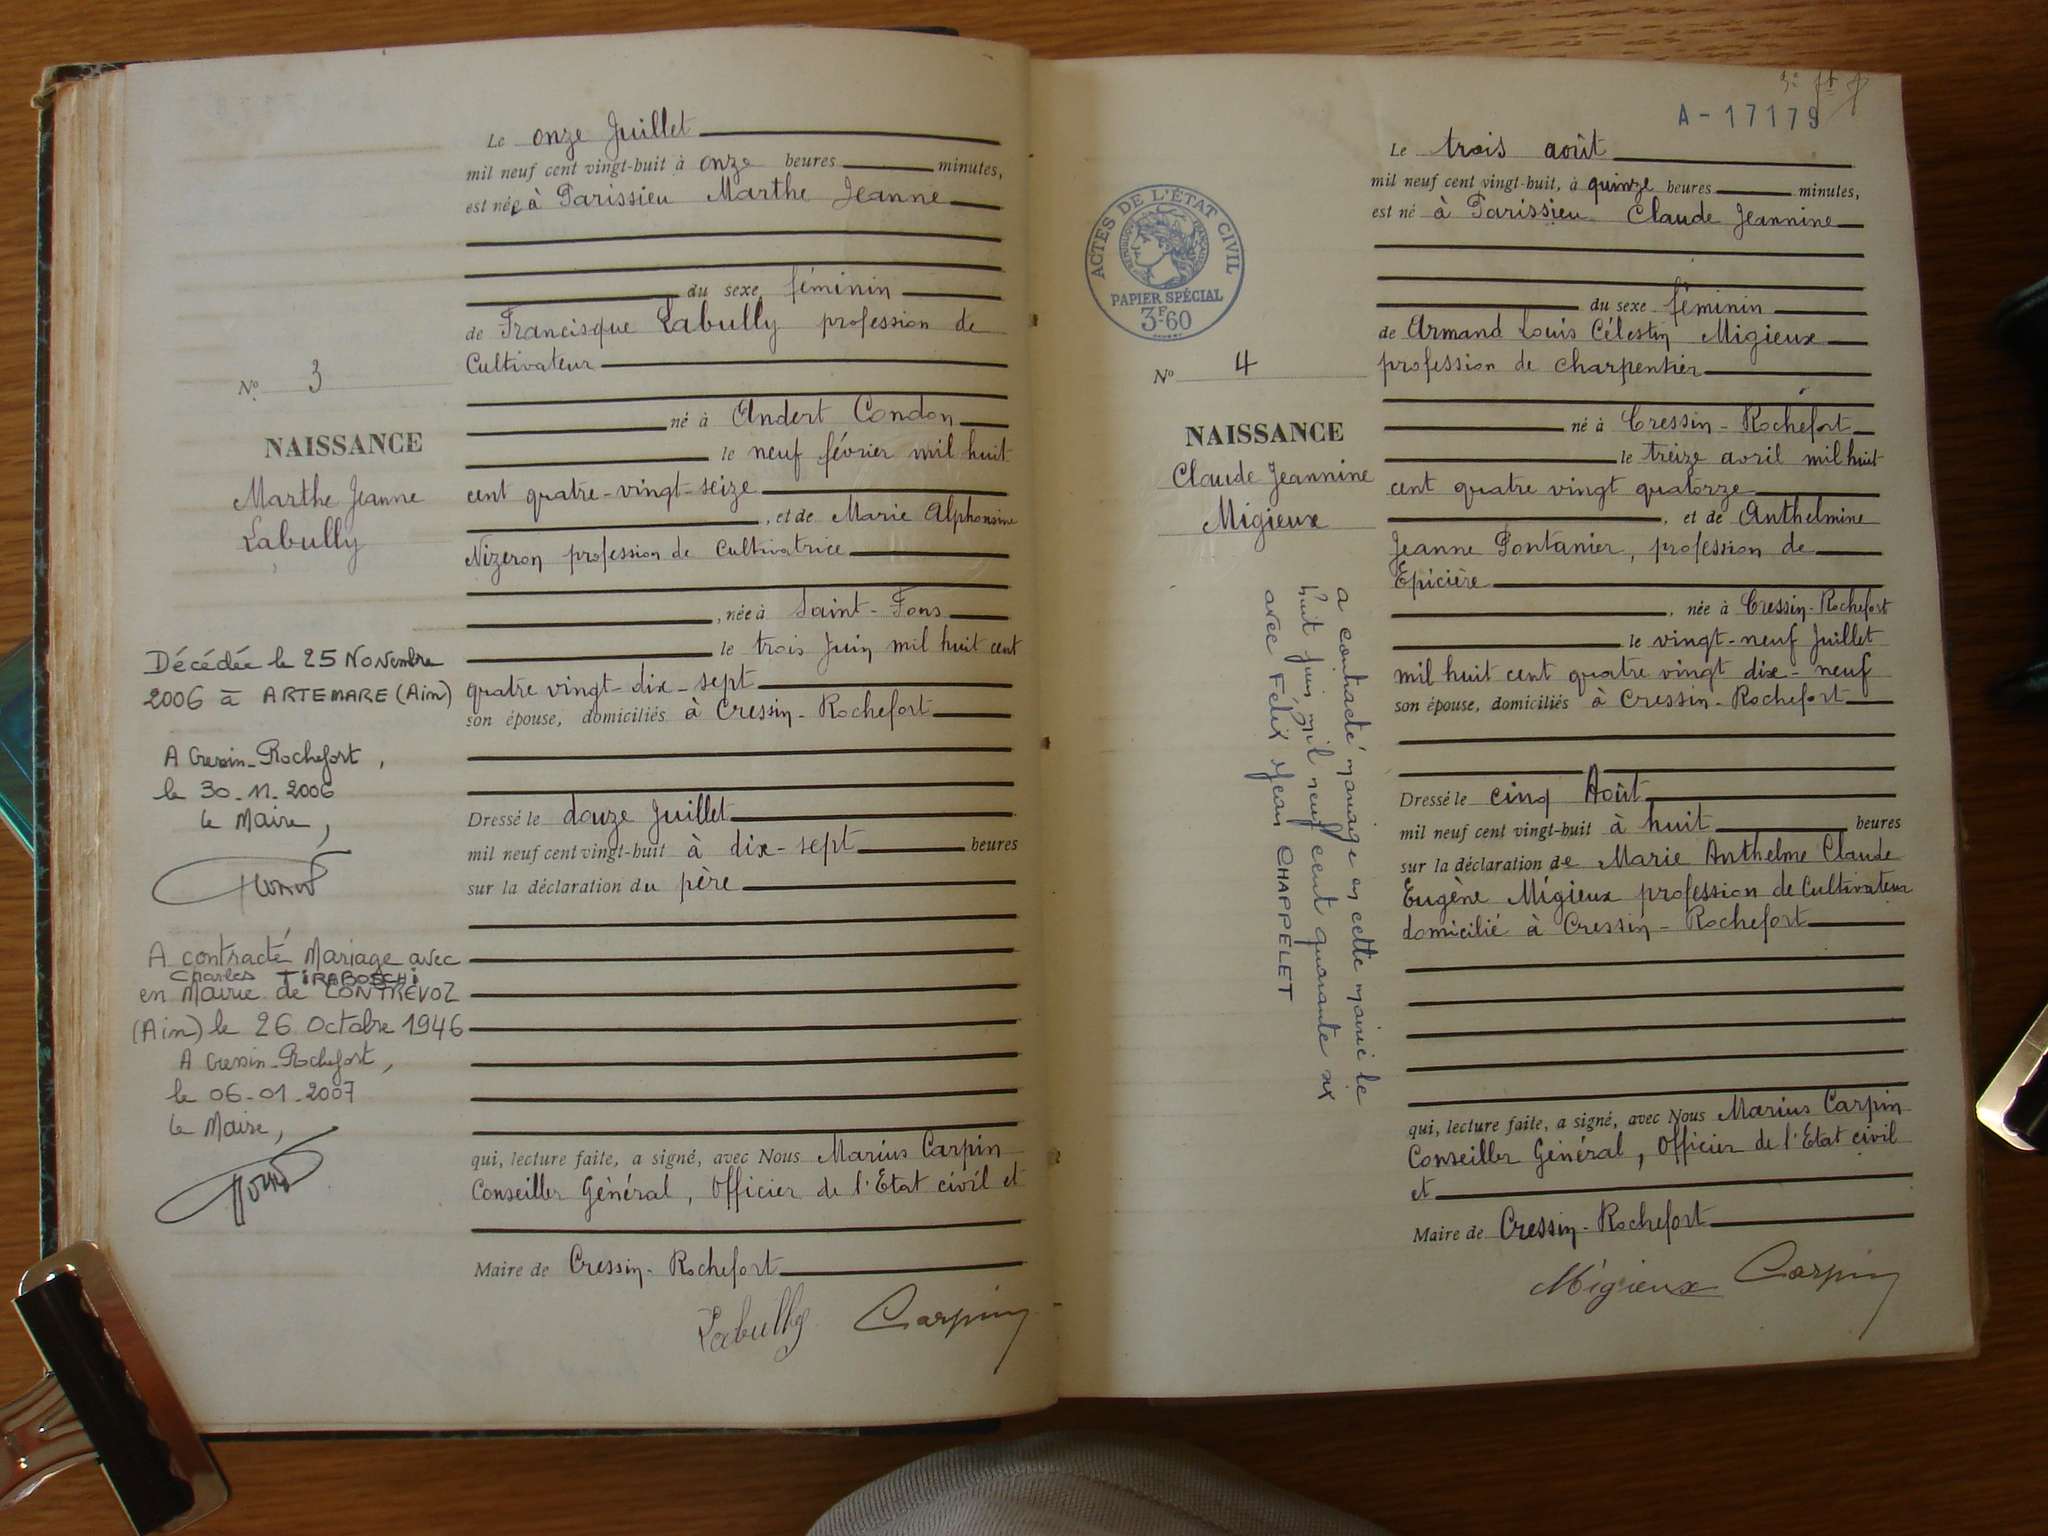 Le onze Juillet
mil neuf cent vingt-huit à onze heures minutes,
est née à Parissieu Marthe Jeanne
du sexe féminin
de Francisque Labully profession de
Cultivateur
né à Andert Condon
le neuf février mil huit
cent quatre-vingt-seize
, et de Marie Alphonsine
Nizeron profession de Cultivatrice
, née à Saint-Fons
le trois Juin mil huit cent
quatre vingt-dix-sept
son épouse, domiciliés à Cressin-Rochefort
Dressé le douze Juillet
mil neuf cent vingt-huit à dix-sept heures
sur la déclaration du père
qui, lecture faite, a signé, avec Nous Marius Carpin
Conseiller Général, Officier de l'Etat civil et
Maire de Cressin-Rochefort
Labully Carpin
No 3
NAISSANCE
Marthe Jeanne
Labully
Décédée le 25 Novembre
2006 à ARTEMARE (Ain)
A Cressin-Rochefort,
le 30-11-2006
Le Maire,
A contracté Mariage avec
Charles TIRABOSCHI
en Mairie de CONTREVOZ
(Ain) le 26 Octobre 1946
A Cressin-Rochefort,
le 06-01-2007
Le Maire,
A-17179
ACTES DE L'ÉTAT CIVIL
RÉPUBLIQUE FRANÇAISE
PAPIER SPÉCIAL
3F60
Le trois août
mil neuf cent vingt-huit, à quinze heures minutes,
est né à Parissieu Claude Jeannine
du sexe féminin
de Armand Louis Célestin Migieux
profession de charpentier
né à Cressin-Rochefort
le treize avril mil huit
cent quatre vingt quatorze
, et de Anthelmine
Jeanne Pontanier, profession de
Epicière
, née à Cressin-Rochefort
le vingt-neuf Juillet
mil huit cent quatre vingt dix-neuf
son épouse, domiciliés à Cressin-Rochefort
Dressé le cinq Août
mil neuf cent vingt-huit à huit heures
sur la déclaration de Marie Anthelme Claude
Eugène Migieux profession de Cultivateur
domicilié à Cressin-Rochefort
qui, lecture faite, a signé, avec Nous Marius Carpin
Conseiller Général, Officier de l'Etat civil
et
Maire de Cressin-Rochefort
Migieux Carpin
No 4
NAISSANCE
Claude Jeannine
Migieux
a contracté mariage en cette mairie le
huit juin mil neuf cent quarante six
avec Félix Jean CHAPPELET